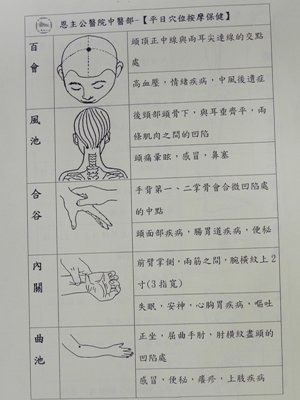 恩主公醫院中醫部-【平日穴位按摩保健】
百會
頭頂正中線與兩耳尖連線的交點
處
高血壓，情緒疾病，中風後遺症
風池
後頸部頭骨下，與耳垂齊平，兩
條肌肉之間的凹陷
頭痛暈眩，感冒，鼻塞
合谷
手背第一、二掌骨會合微凹陷處
的中點
頭面部疾病，腸胃道疾病，便秘
內關
前臂掌側，兩筋之間，腕橫紋上2
寸(3指寬)
失眠，安神，心胸胃疾病，嘔吐
曲池
正坐，屈曲手肘，肘橫紋盡頭的
凹陷處
感冒，便秘，癢疹，上肢疾病